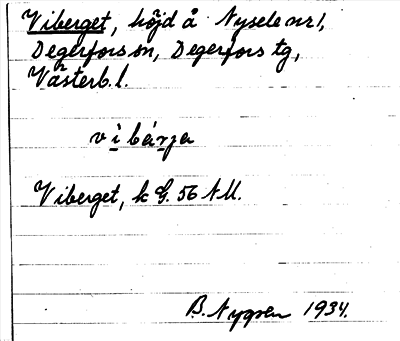 Viberget, höjd å Nysele nr 1,
Degerfors sn, Degerfors tg,
Västerb. l.
vìbárja
Viberget, k G. 56 NM.
B. Nygren 1934.